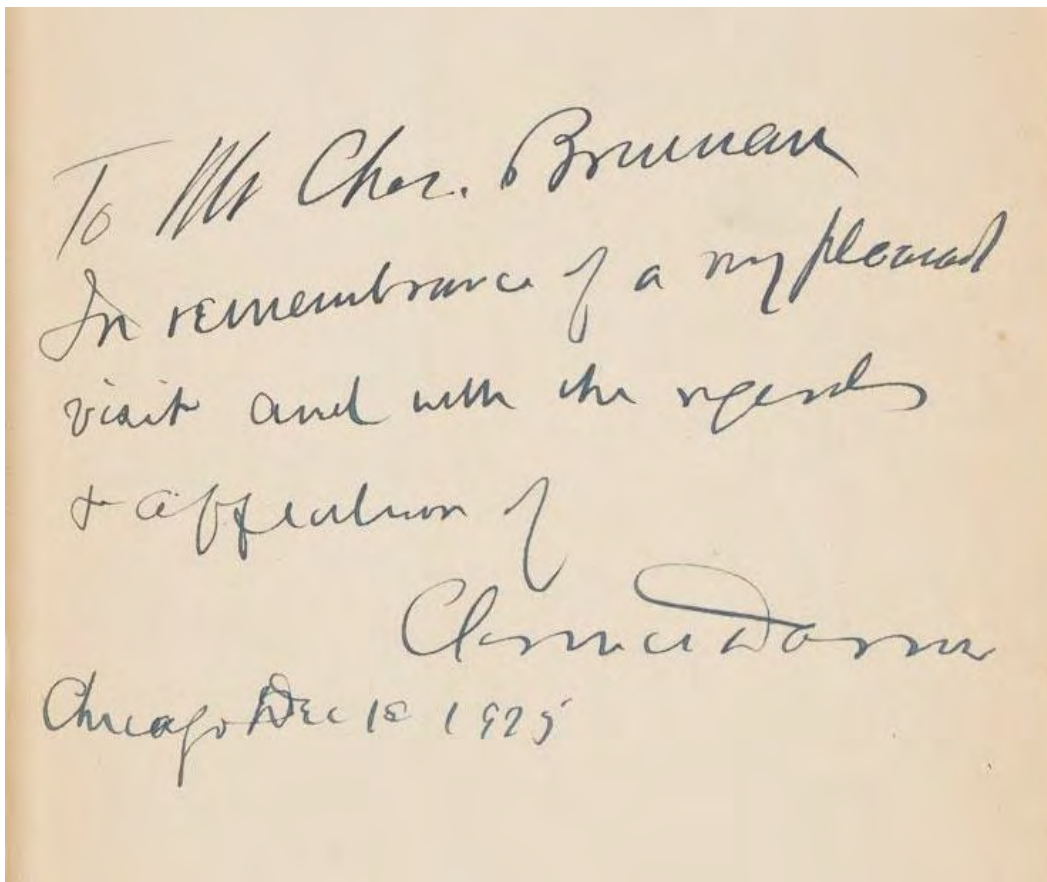 To Mr Chas. Brennan
In remembrance of a very pleasant
visit and with the regards
& affection of
Clarence Darrow
Chicago Dec 18 1925